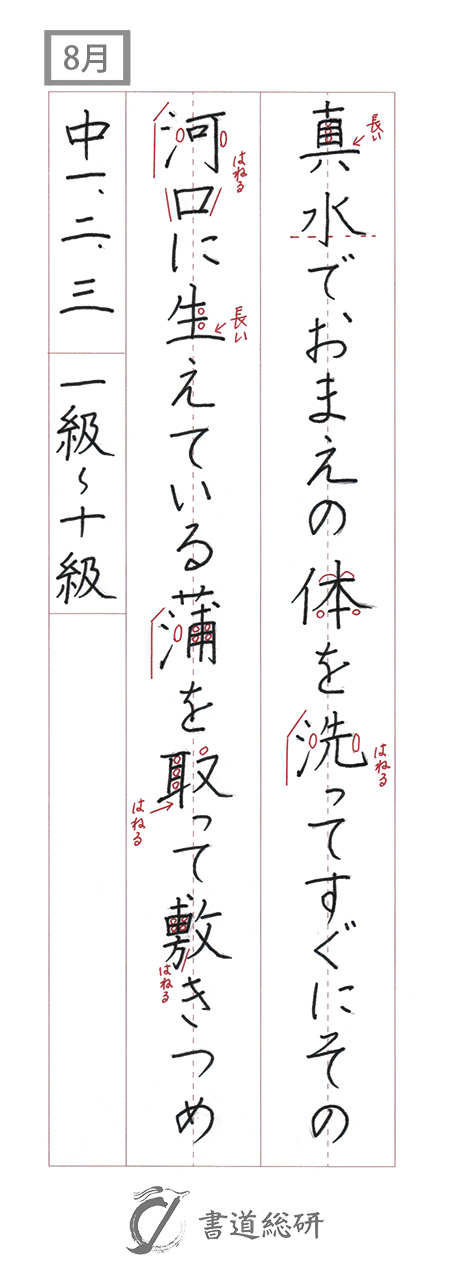 8月
真水で、おまえの体を洗ってすぐにその
河口に生えている蒲を取って敷きつめ
中一、二、三 一級〜十級
長い
はねる
はねる
長い
はねる
はねる
書道総研